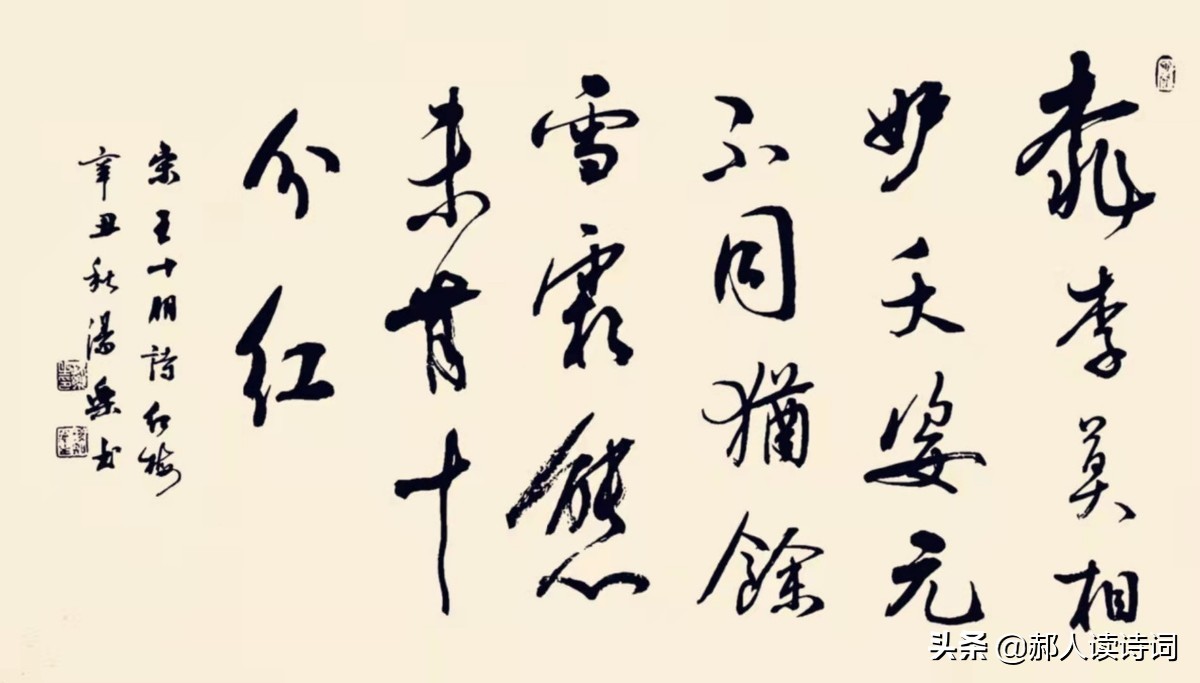 桃李莫相
妒夭姿元
不同猶餘
雪霜態
未肯十
分红
宋王十朋詩红梅
辛丑秋湯书
头条 @郝人读诗词